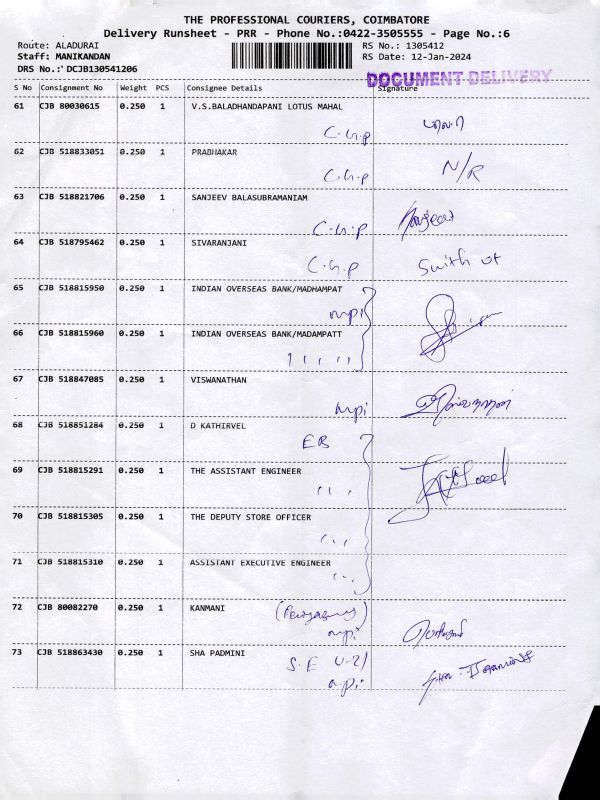 THE PROFESSIONAL COURIERS, COIMBATORE
Delivery Runsheet - PRR - Phone No.:0422-3505555 - Page No.:6
Route: ALADURAI RS No.: 1305412
Staff: MANIKANDAN RS Date: 12-Jan-2024
DRS No.: DCJB130541206
DOCUMENT DELIVERY
S No Consignment No Weight PCS Consignee Details Signature
61 CJB 80030615 0.250 1 V.S.BALADHANDAPANI LOTUS MAHAL
C.G.P
62 CJB 518833051 0.250 1 PRABHAKAR
C.G.P N/R
63 CJB 518821706 0.250 1 SANJEEV BALASUBRAMANIAM
C.G.P
64 CJB 518795462 0.250 1 SIVARANJANI
C.G.P
65 CJB 518815950 0.250 1 INDIAN OVERSEAS BANK/MADHAMPAT
mpi
66 CJB 518815960 0.250 1 INDIAN OVERSEAS BANK/MADAMPATT
67 CJB 518847085 0.250 1 VISWANATHAN
mpi
68 CJB 518851284 0.250 1 D KATHIRVEL
EB
69 CJB 518815291 0.250 1 THE ASSISTANT ENGINEER
70 CJB 518815305 0.250 1 THE DEPUTY STORE OFFICER
71 CJB 518815310 0.250 1 ASSISTANT EXECUTIVE ENGINEER
72 CJB 80082270 0.250 1 KANMANI
mpi
73 CJB 518863430 0.250 1 SHA PADMINI
mpi